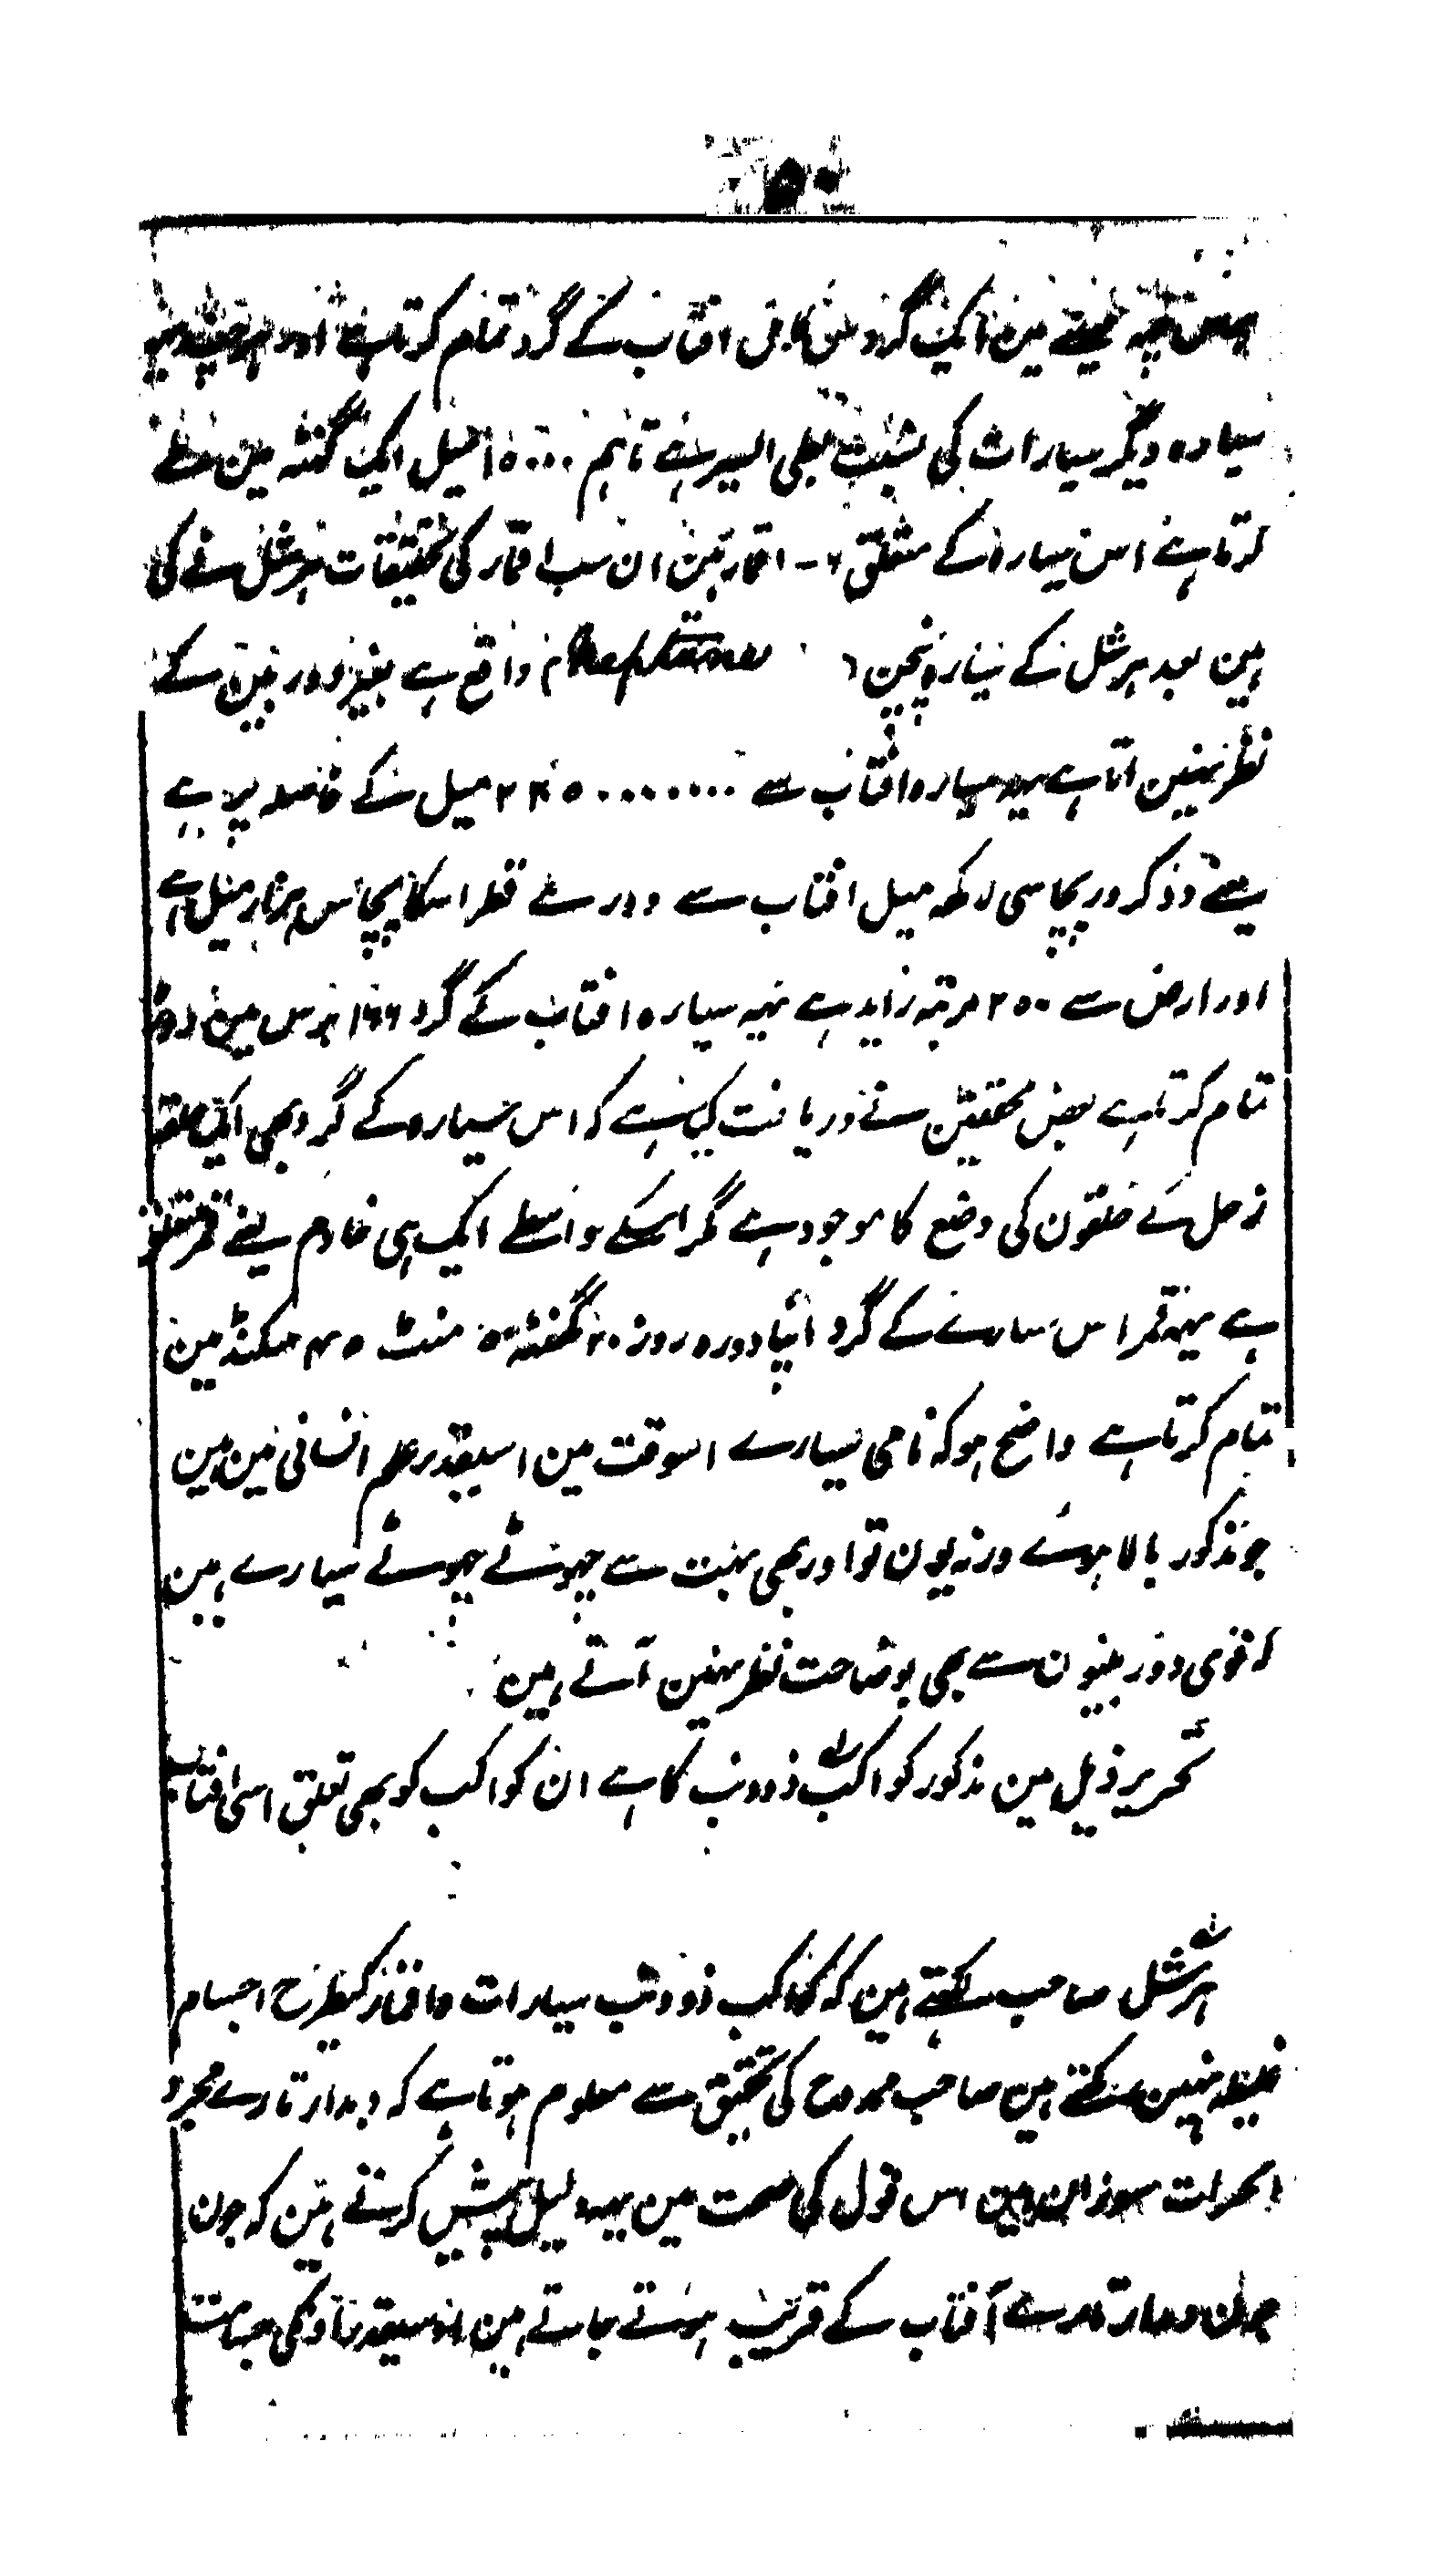 برس چھ مہینے مین ایک گردش کامل افتاب کے گرد تمام کرتا ہے اور ہر چند یہہ
سیارہ دیگر سیارات کی نسبت بطی السیر ہے تاہم ۱۵۰۰۰ میل ایک گھنٹہ مین طے
کرتا ہے اس سیارہ کے متعلق ۶- اقمار ہین ان سب اقمار کی تحقیقات ہرشل نے کی
ہین بعد ہرشل کے سیارہ نپچن ( Neptune ) واقع ہے بغیر دوربین کے
نظر نہین اتا ہے یہہ سیارہ افتاب سے ۲۸۵۰۰۰۰۰۰۰ میل کے فاصلہ پر ہے
یعنے دو کرور پچاسی لاکھ میل افتاب سے دور ہے قطر اسکا پچاس ہزار میل ہے
اور ارض سے ۲۵۰ مرتبہ زاید ہے یہہ سیارہ افتاب کے گرد ۱۶۶ برس مین دورہ
تمام کرتا ہے بعض محققین نے دریافت کیا ہے کہ اس سیارہ کے گرد بھی ایک حلقہ
زحل کے حلقون کی وضع کا موجود ہے مگر اسکے واسطے ایک ہی خادم یعنے قمر متعلق
ہے یہہ قمر اس سیارے کے گرد اپنا دورہ روز ۲۰ گھنٹہ ۵۰ منٹ ۴۵ سکنڈ مین
تمام کرتا ہے واضح ہو کہ نامی سیارے اسوقت مین اسیقدر علم انسانی مین ہین
جو مذکور بالا ہوئے ورنہ یون تو اور بھی بہت سے چھوٹے چھوٹے سیارے ہین
کہ قوی دوربینون سے بھی بوضاحت نظر نہین آتے ہین
تحریر ذیل مین مذکور کواکب ذوذنب کا ہے ان کواکب کو بھی تعلق اسی افتاب
ہرشل صاحب لکھتے ہین کہ کواکب ذوذنب سیارات و اقمار کیطرح اجسام
غلیظہ نہین رکھتے ہین صاحب ممدوح کی تحقیق سے معلوم ہوتا ہے کہ دمدار تارے مجرد
ابخرات سوزان ہین اس قول کی صحت مین یہہ دلیل پیش کرتے ہین کہ جون
جون دمدار تارے آفتاب کے قریب ہوتے جاتے ہین اوسیقدر اونکی جسامت